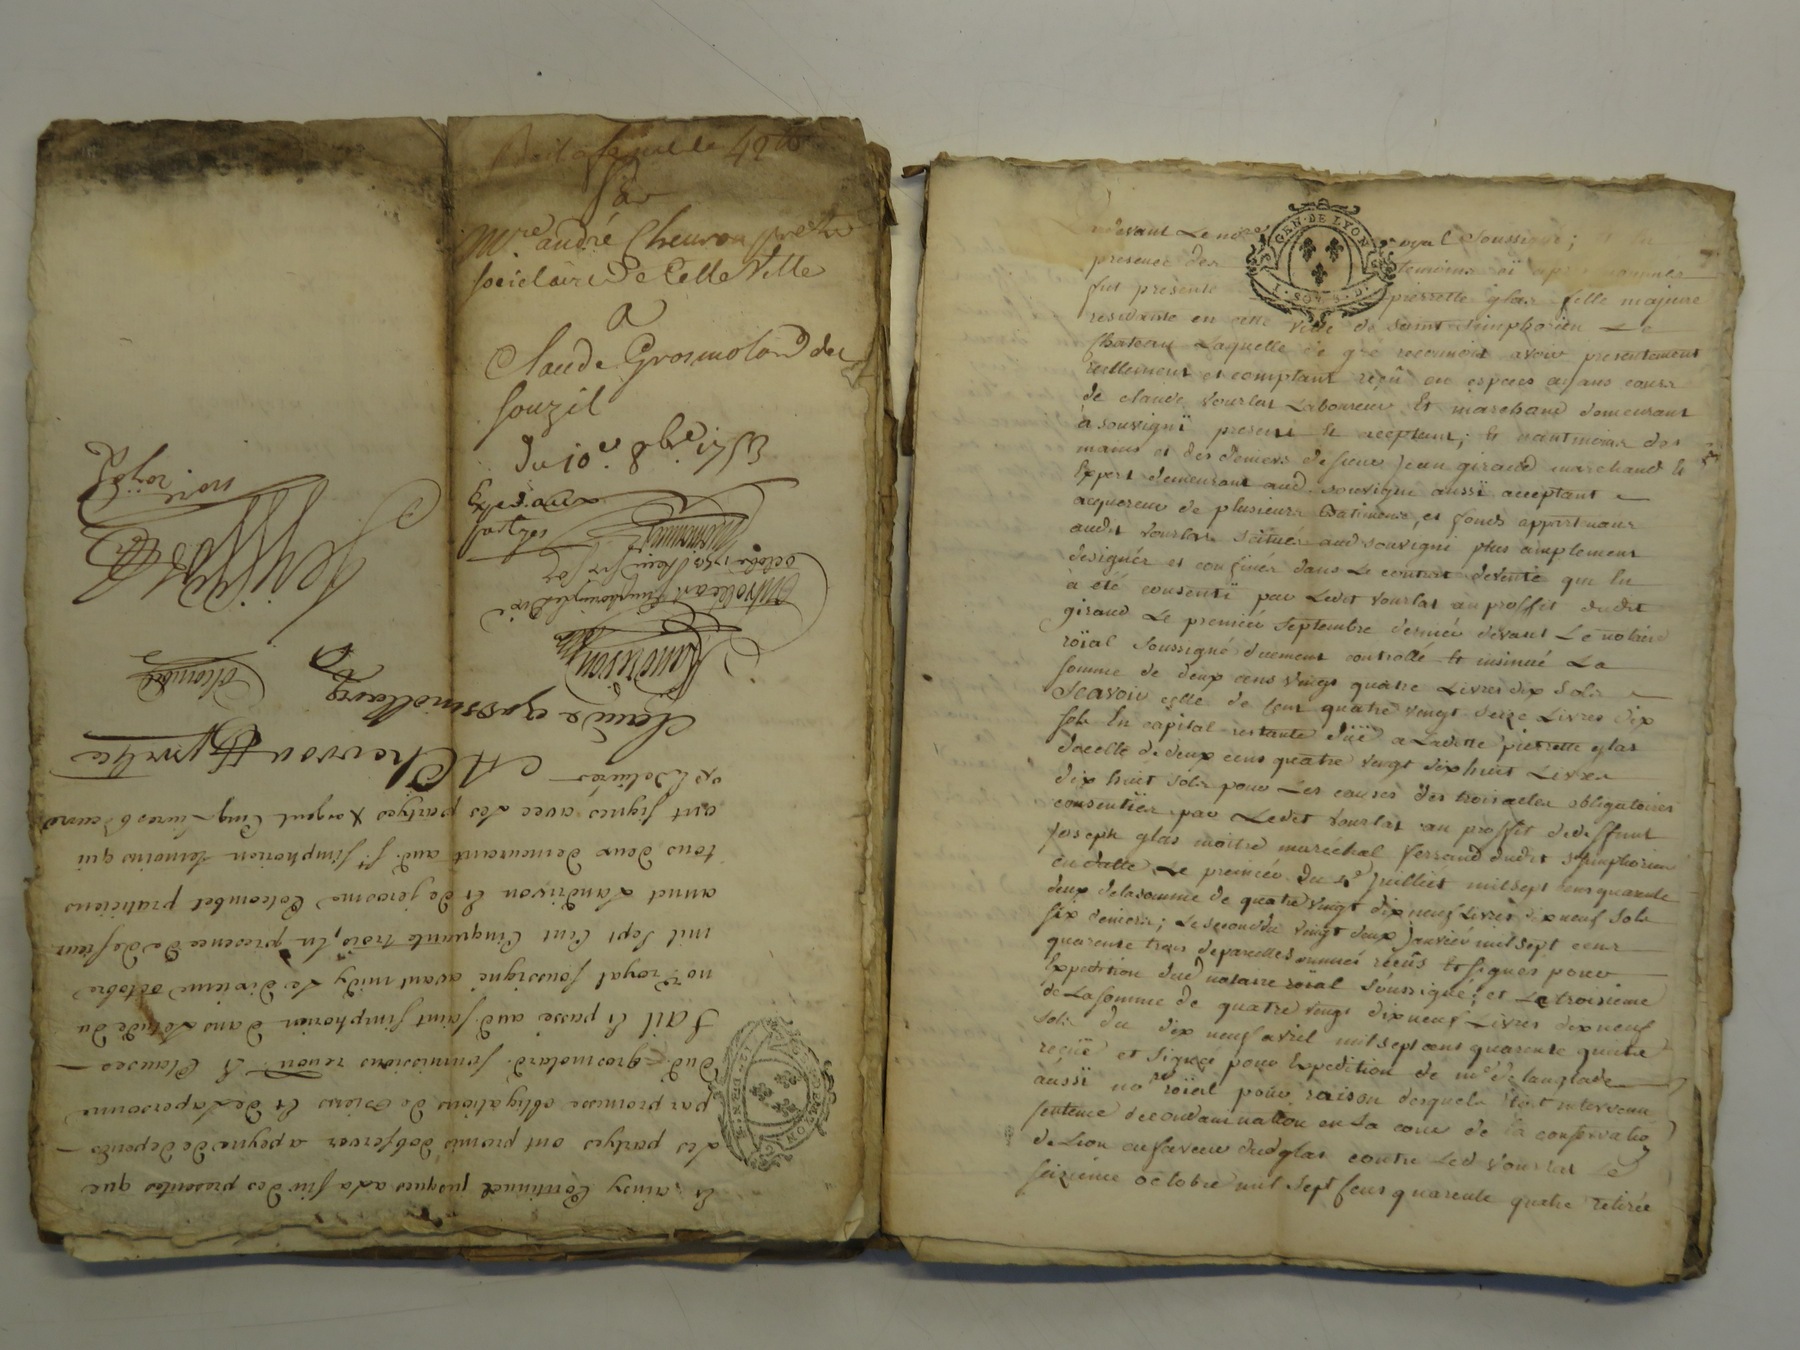 Bail a ferme de 42 ₶
Par
Mre andré Cheuron prêtre
sociétaire De Cette Ville
a
Claude Grosmolard de
souzil
Du 10e 8bre 1753
GEN · DE LYON
Pardevant Le nore royal soussigné; et en
presence des temoins cy apres nommés
fut presente pierrette glas fille majeure
residante en cette ville de saint simphorien Le
Chateau Laquelle de gré reconnoit avoir presentement
reellement et comptant reçû en especes ayans cours
de claude vourlat Laboureur Et marchand demeurant
à souvigni present et acceptant; et neantmoins des
mains et des deniers de sieur Jean giraud marchand et
Expert demeurant aud. souvigni aussi acceptant
acquereur de plusieurs Batimens, et fonds appartenans
audit vourlat scitués aud souvigni plus amplement
designés et confinés dans Le contrat de vente qui lui
à été consenti par Ledit vourlat au proffit dudit
giraud Le premier septembre dernier devant Le notaire
roïal soussigné duement controllé et insinué La
somme de deux cens vingt quatre Livres dix sols
Scavoir celle de Cent quatre vingt seize Livres dix
sols En capital restante düe a Laditte pierrette glas
de celle de deux cens quatre vingt dix huit Livres
dix huit sols pour Les causes des trois actes obligatoires
consenties par Ledit vourlat au proffit de deffunt
Joseph glas maitre marechal ferrand dudit st simphorien
en datte Le premier du 4e Juillet mil sept cens quarente
deux de la somme de quatre vingt dix neuf Livres dix neuf sols
six deniers; Le second du vingt deux Janvier mil sept cens
quarente trois de pareilles sommes reçûs et signés pour
Expedition dud notaire roïal soussigné; et Le troisieme
de La somme de quatre vingt dix neuf Livres dix neuf
sols du dix neuf avril mil sept cens quarente quatre
reçüe et signée pour Expedition de me delanglade
aussi nore roïal pour raison desquels seroit intervenu
sentence de condamnation en La cour de la conservatio
de Lion en faveur dud glas contre Led vourlat Le
seizieme octobre mil sept Cens quarente quatre retirée
Et ainsy Continuer jusques a la fin des presentes que
Les partyes ont promis d'observer a peyne de depends
par promesse obligations de Biens Et de La personne
dud. grosmolard. soumissions renon. Et Clauses
Fait Et passé aud. saint simphorien dans L'etude du
nore royal soussigné avant midy Le dixieme octobre
mil sept Cent Cinquante trois, En presence de sieur
annet Landrivon Et de jerosme Colcombet praticiens
tous deux demeurant aud. st simphorien temoins qui
ont signés avec Les partyes
A Cheuron ptre
Claude grosmollard
Landrivon
nore royal